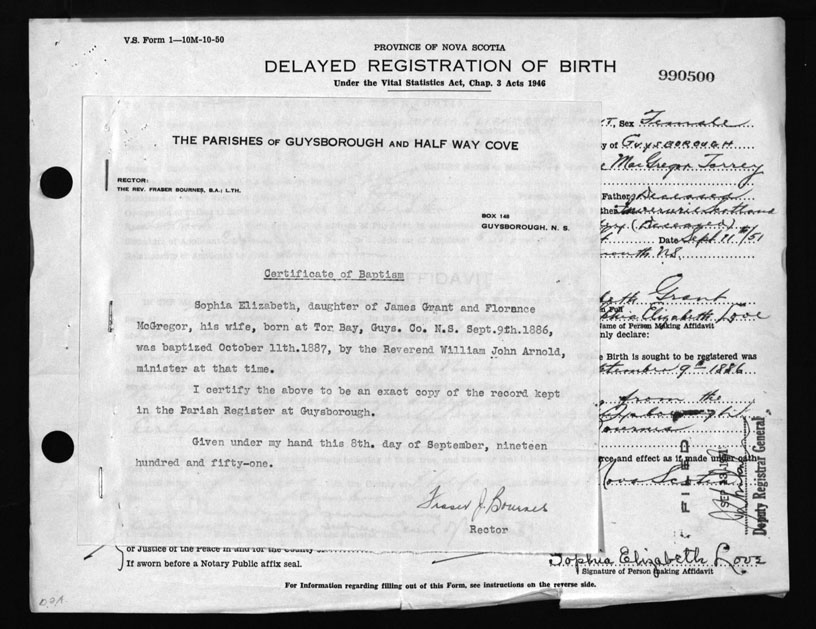 V.S. Form 1—10M-10-50
PROVINCE OF NOVA SCOTIA
DELAYED REGISTRATION OF BIRTH
Under the Vital Statistics Act, Chap. 3 Acts 1946
990500
THE PARISHES OF GUYSBOROUGH AND HALF WAY COVE
RECTOR:
THE REV. FRASER BOURNES, B.A.; L.TH.
BOX 148
GUYSBOROUGH, N. S.
Certificate of Baptism
Sophia Elizabeth, daughter of James Grant and Florance
McGregor, his wife, born at Tor Bay, Guys. Co. N.S. Sept.9th.1886,
was baptized October 11th.1887, by the Reverend William John Arnold,
minister at that time.
I certify the above to be an exact copy of the record kept
in the Parish Register at Guysborough.
Given under my hand this 8th. day of September, nineteen
hundred and fifty-one.
Fraser J. Bournes
Rector
Sex Female
y of GUYSBOROUGH
MacGregor Torrey
Father Deceased
Scotland
(Deceased)
Date Sept 11th/51
N.S.
Grant
Elizabeth Love
Name of Person Making Affidavit
nly declare:
e Birth is sought to be registered was
9th 1886
from the
rce and effect as if made under oath
Nova Scotia
FILED
SEP 13 1951
Deputy Registrar General
or Justice of the Peace in and for the County of
If sworn before a Notary Public affix seal.
Sophia Elizabeth Love
Signature of Person Making Affidavit
For Information regarding filling out of this Form, see instructions on the reverse side.